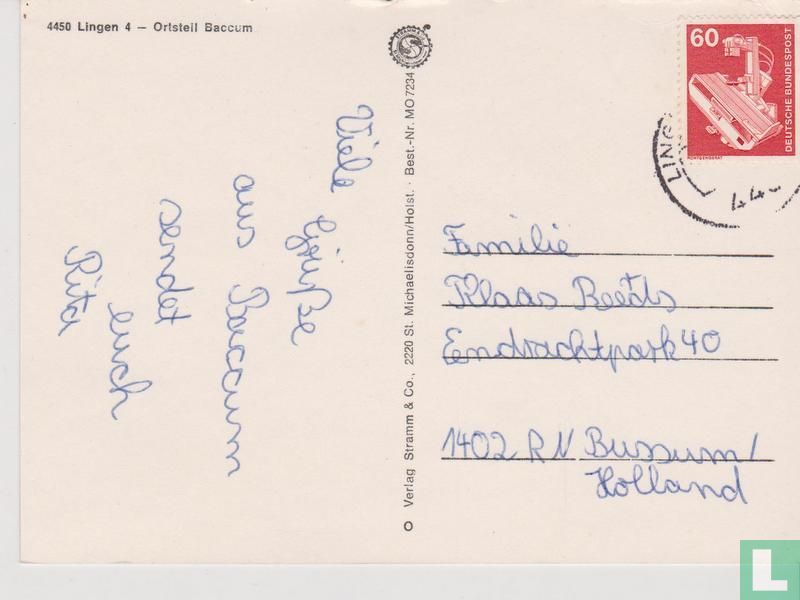 4450 Lingen 4 – Ortsteil Baccum
Viele Grüße
aus Baccum
sendet
euch
Rita
Verlag Stramm & Co., 2220 St. Michaelisdonn/Holst. · Best.-Nr. MO 7234
60
DEUTSCHE BUNDESPOST
RÖNTGENGERÄT
LING
Familie
Klaas Beets
Eendrachtpark 40
1402 RN Bussum/
Holland
L